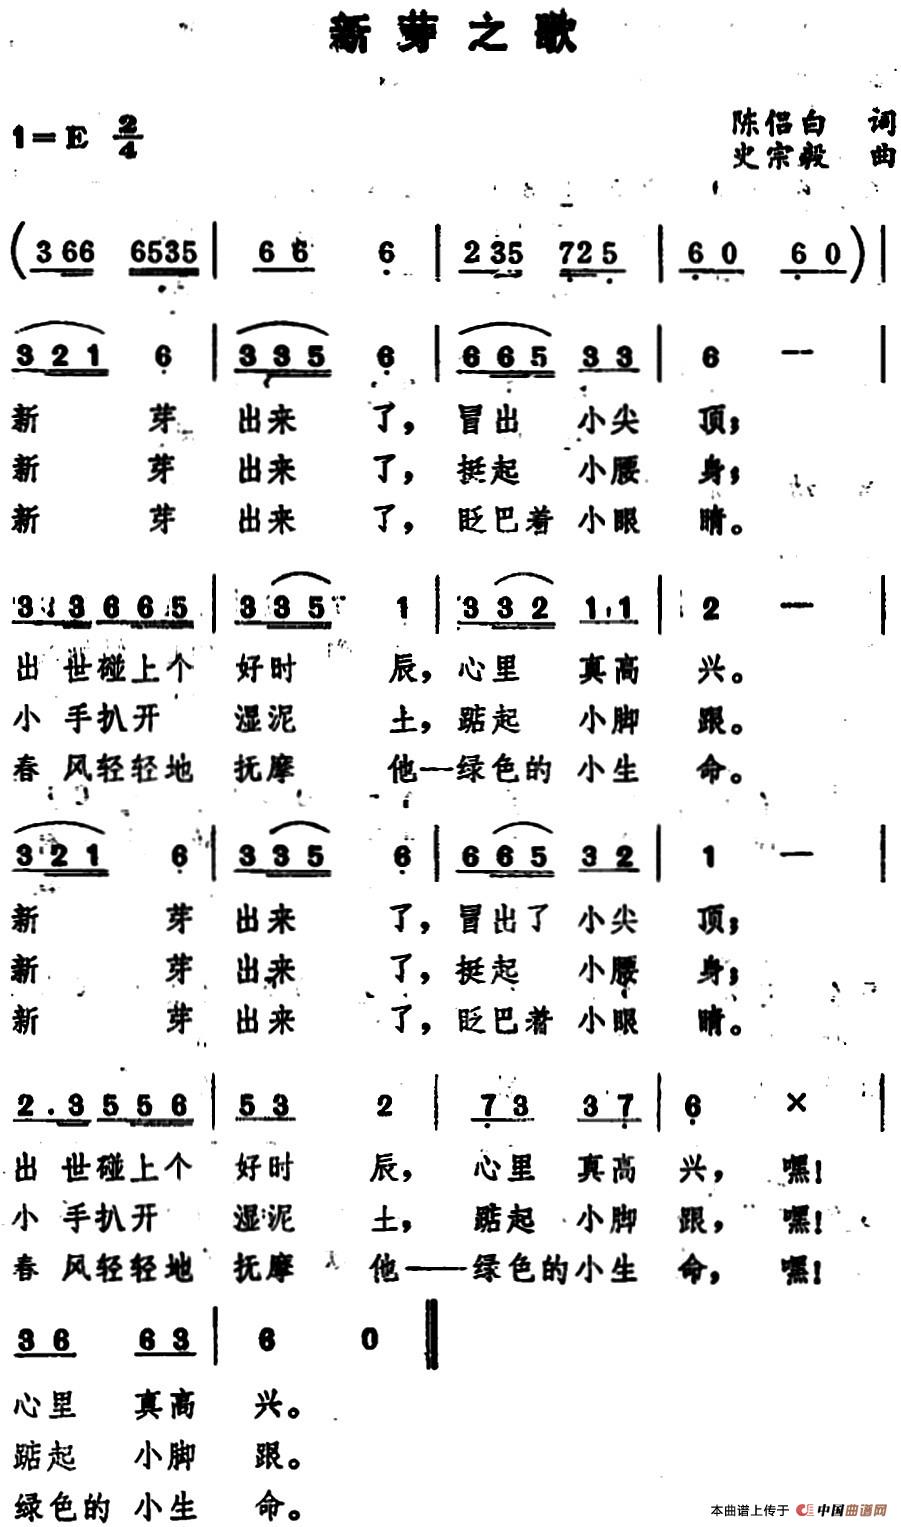 新芽之歌
1=E 2/4
陈侣白 词
史宗毅 曲
(3 66 6535 | 6 6 6 | 2 35 725 | 6 0 6 0) |
3 2 1 6 | 3 3 5 6 | 6 6 5 3 3 | 6 — |
新 芽 出来 了，冒出 小尖 顶；
新 芽 出来 了，挺起 小腰 身；
新 芽 出来 了，眨巴着 小眼 睛。
3 3 6 6 5 | 3 3 5 1 | 3 3 2 1 1 | 2 — |
出 世碰上个 好时 辰，心里 真高 兴。
小 手扒开 湿泥 土，踮起 小脚 跟。
春 风轻轻地 抚摩 他—绿色的 小生 命。
3 2 1 6 | 3 3 5 6 | 6 6 5 3 2 | 1 — |
新 芽 出来 了，冒出了 小尖 顶；
新 芽 出来 了，挺起 小腰 身；
新 芽 出来 了，眨巴着 小眼 睛。
2 . 3 5 5 6 | 5 3 2 | 7 3 3 7 | 6 × |
出 世碰上个 好时 辰， 心里 真高 兴， 嘿！
小 手扒开 湿泥 土， 踮起 小脚 跟， 嘿！
春 风轻轻地 抚摩 他——绿色的小生 命， 嘿！
3 6 6 3 | 6 0 ‖
心里 真高 兴。
踮起 小脚 跟。
绿色的 小生 命。
本曲谱上传于 中国曲谱网